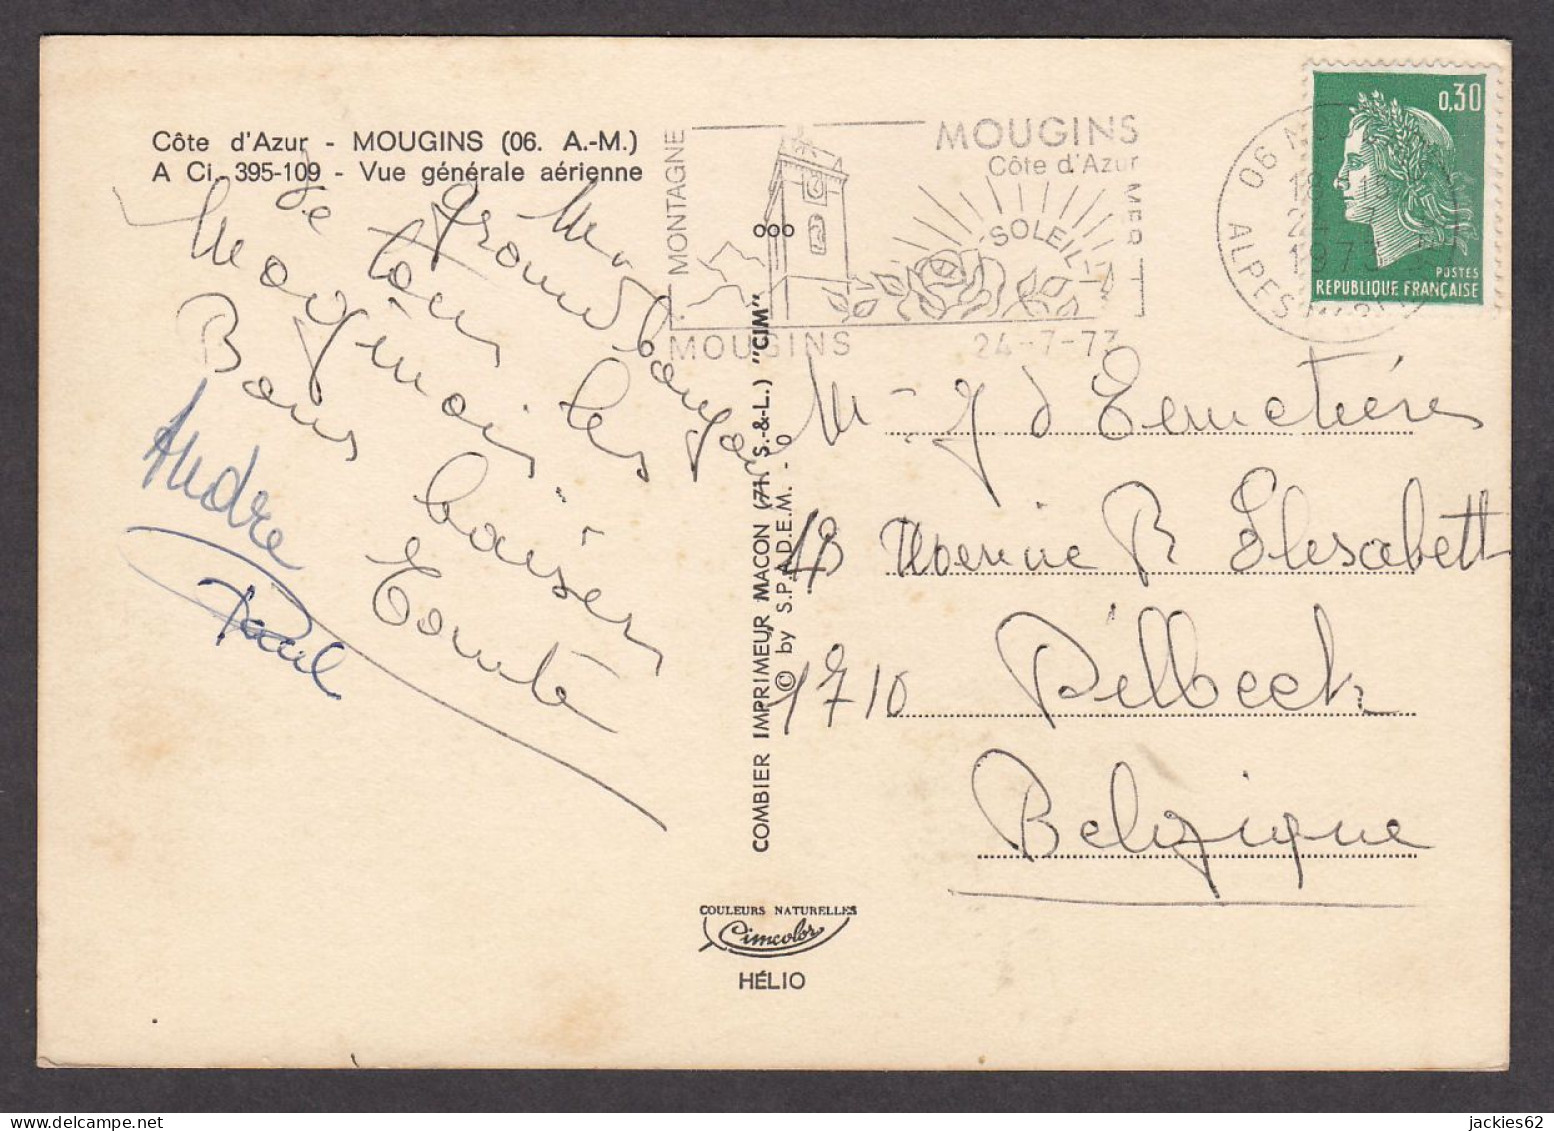 Côte d'Azur - MOUGINS (06. A.-M.)
A Ci. 395-109 - Vue générale aérienne
Un grand bonjour
de tous les
Mouginois
Bons baisers
Tonte
André
Paul
COMBIER IMPRIMEUR MACON (71. S.-&-L.) "CIM"
© by S.P.A.D.E.M. - 0
MONTAGNE
MOUGINS
Côte d'Azur
MER
SOLEIL
MOUGINS
24-7-73
06 MOUGINS
1973
ALPES MARIT
0,30
POSTES
REPUBLIQUE FRANÇAISE
M - J d'
43 Avenue R Elisabeth
1710 Dilbeek
Belgique
COULEURS NATURELLES
Cimcolor
HÉLIO
jackies62